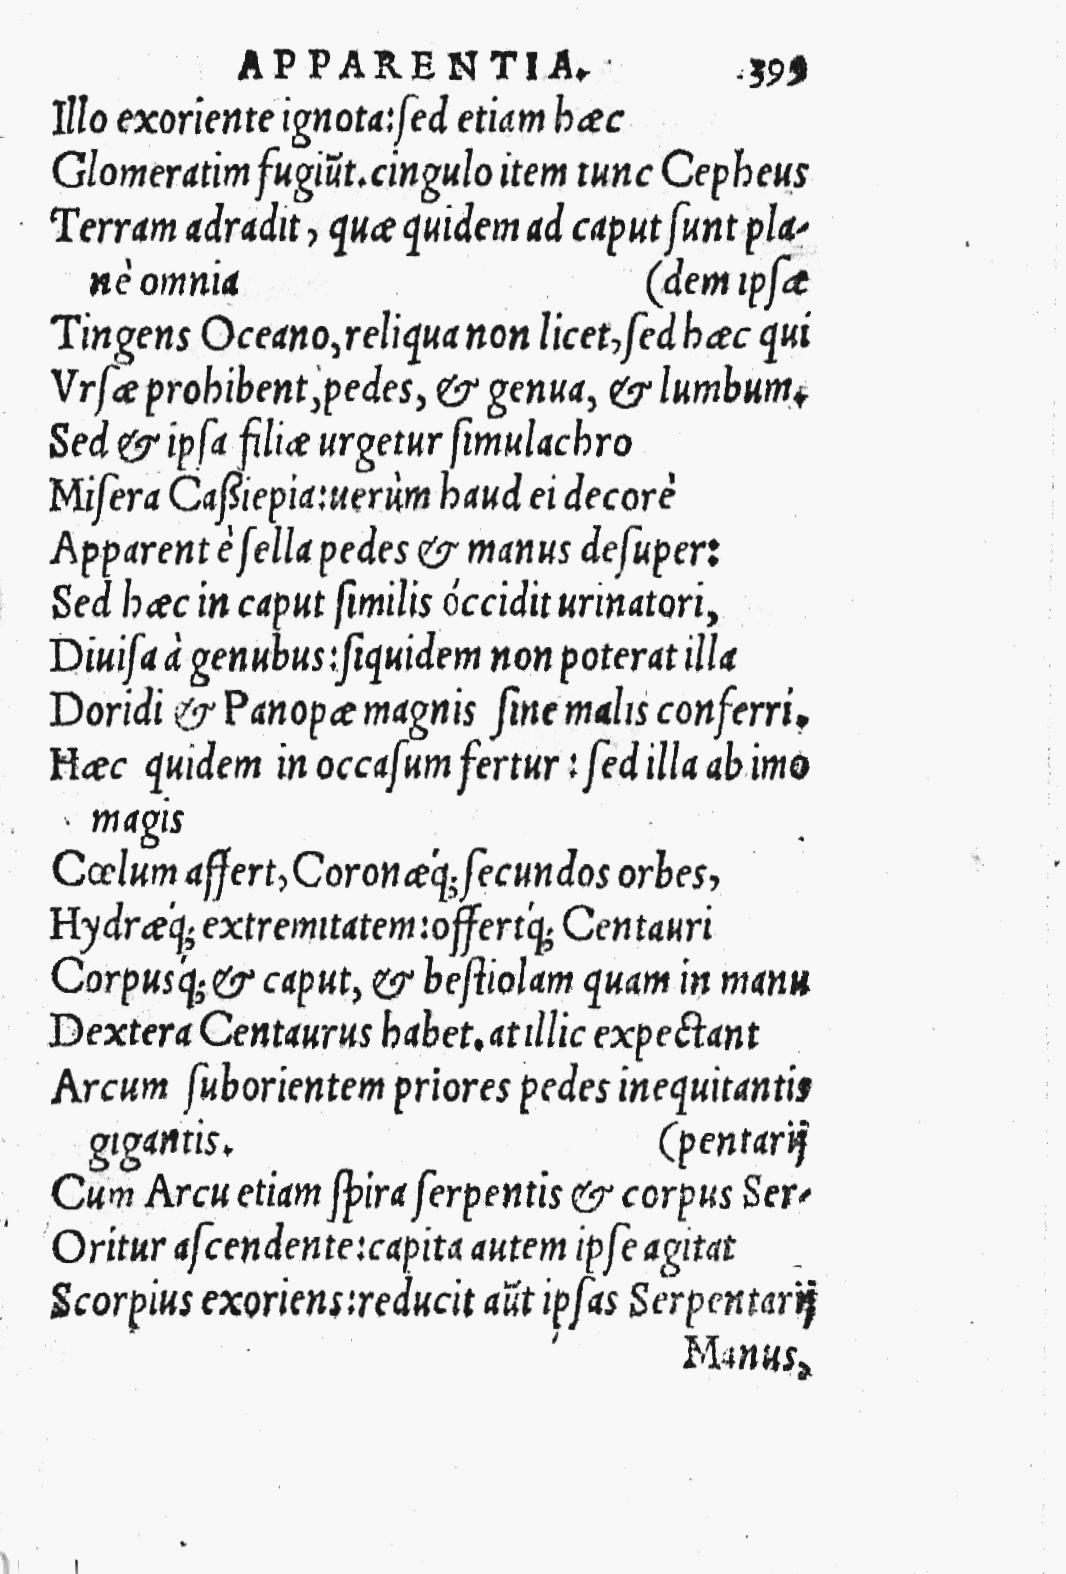 APPARENTIA. 399
Illo exoriente ignota:ſed etiam hæc
Glomeratim fugiũt.cingulo item tunc Cepheus
Terram adradit, quæ quidem ad caput ſunt pla-
nè omnia (dem ipſæ
Tingens Oceano,reliqua non licet,ſed hæc qui
Vrſæ prohibent,pedes, & genua, & lumbum.
Sed & ipſa filiæ urgetur ſimulachro
Miſera Caßiepia:uerùm haud ei decorè
Apparent è ſella pedes & manus deſuper:
Sed hæc in caput ſimilis óccidit urinatori,
Diuiſa à genubus:ſiquidem non poterat illa
Doridi & Panopæ magnis ſine malis conferri.
Hæc quidem in occaſum fertur : ſed illa ab imo
magis
Cœlum affert, Coronæq́; ſecundos orbes,
Hydræq́; extremitatem:offertq́; Centauri
Corpusq́; & caput, & beſtiolam quam in manu
Dextera Centaurus habet.at illic expectant
Arcum ſuborientem priores pedes inequitantis
gigantis. (pentarij
Cum Arcu etiam ſpira ſerpentis & corpus Ser-
Oritur aſcendente:capita autem ipſe agitat
Scorpius exoriens:reducit aũt ipſas Serpentarij
Manus,